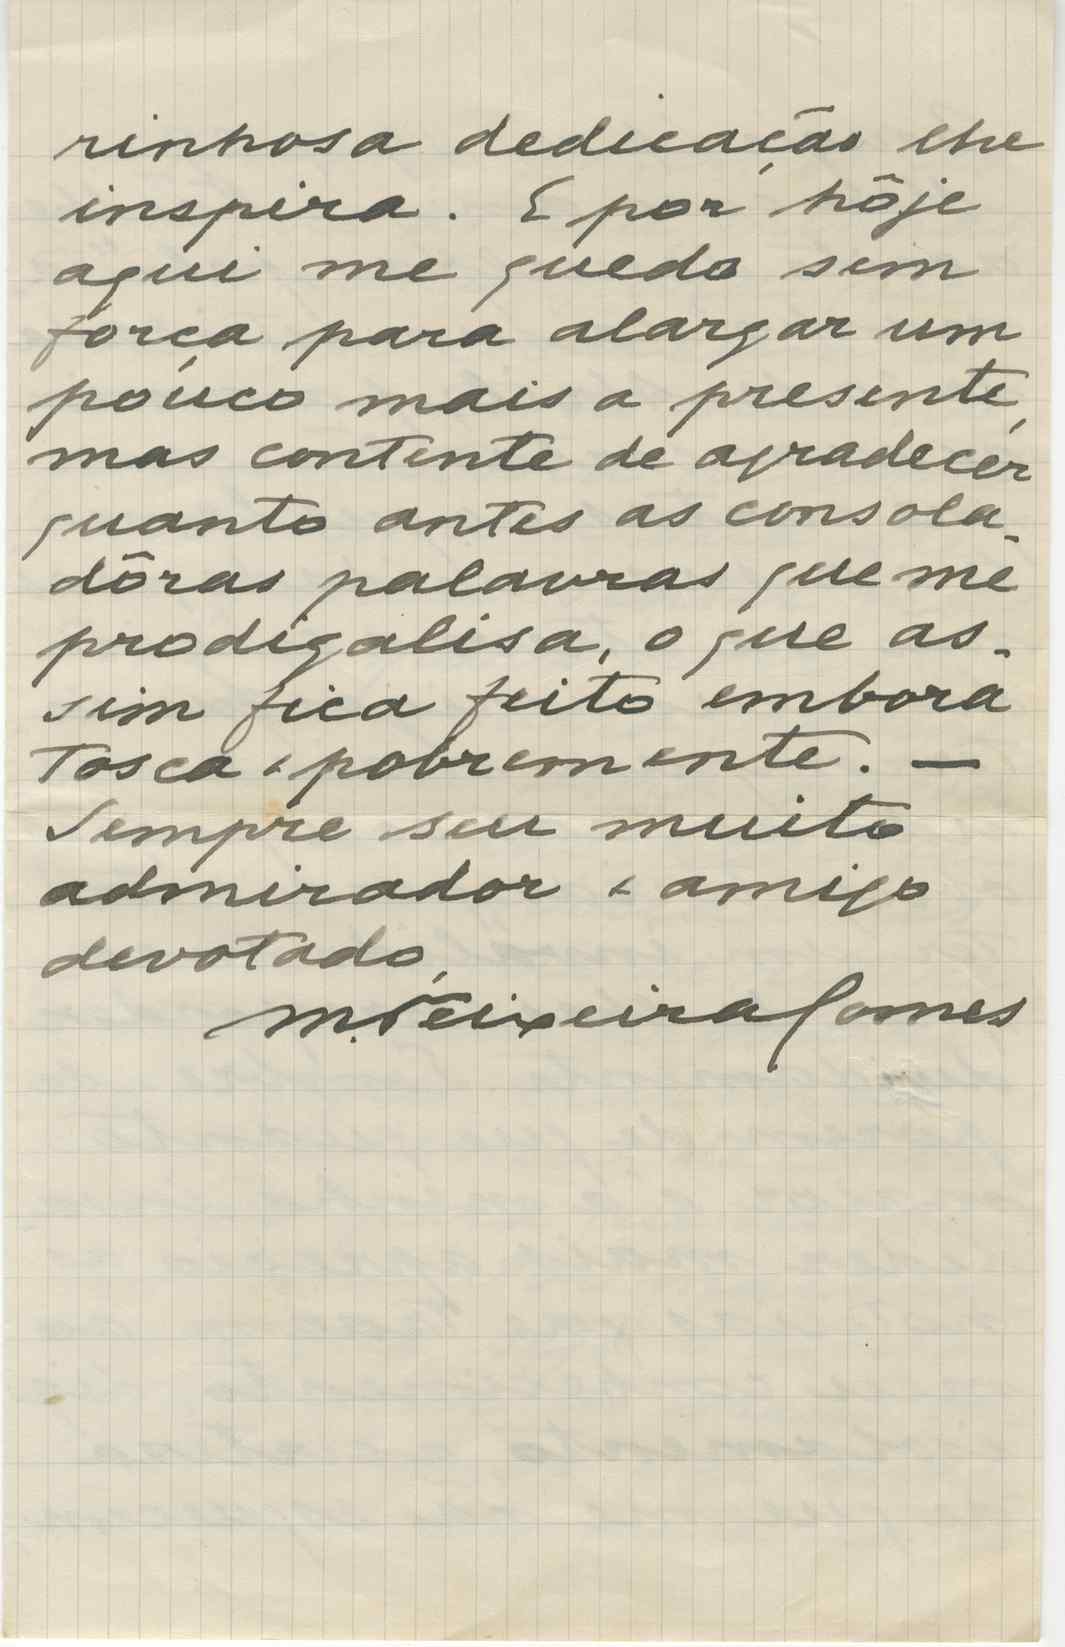 rinhosa dedicação lhe
inspira. E por hôje
aqui me quedo sem
força para alargar um
pouco mais a presente,
mas contente de agradecer
quanto antes as consola-
dôras palavras que me
prodigalisa, o que as-
sim fica feito embora
tosca e pobremente. —
Sempre seu muito
admirador e amigo
devotado,
M. Teixeira Gomes